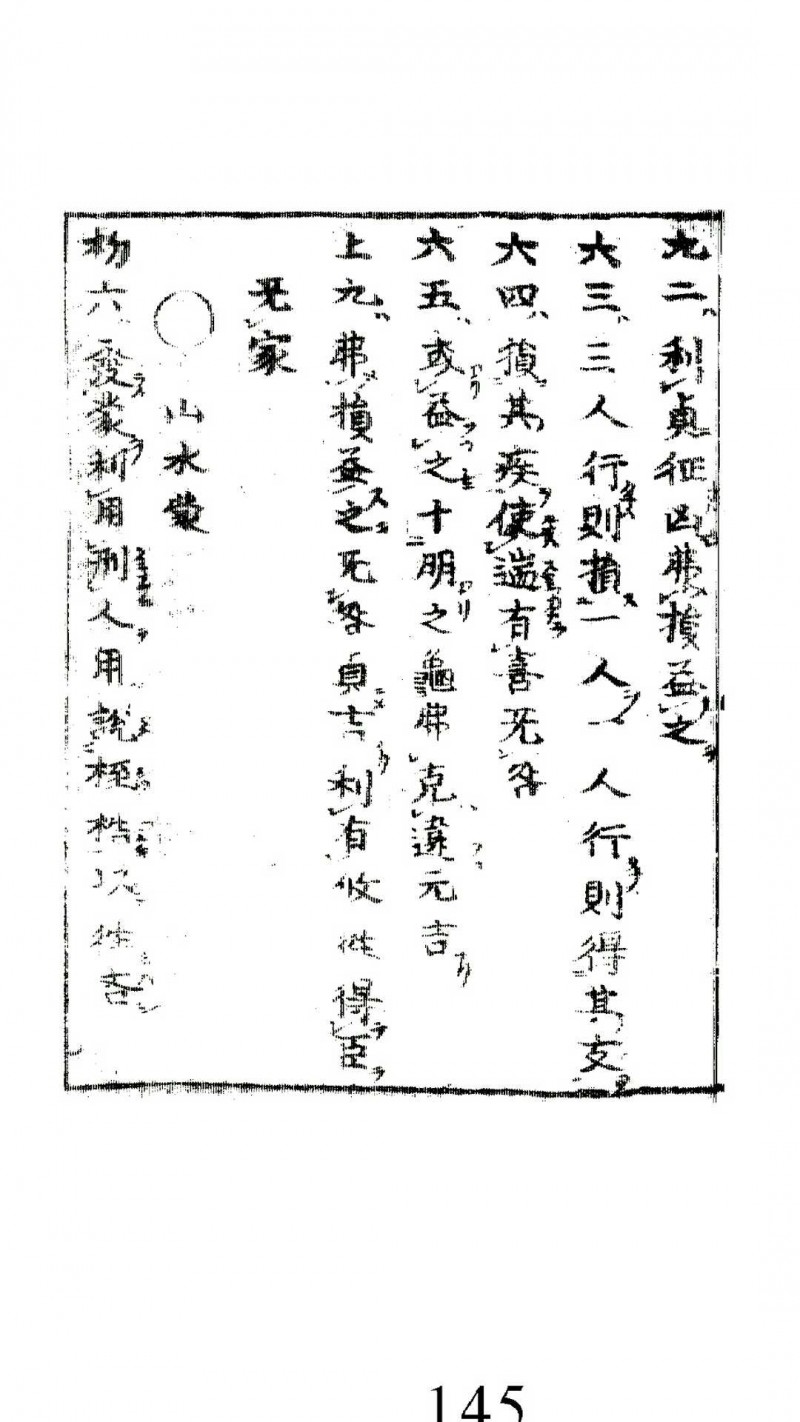 九二利貞征凶弗損益之
六三三人行則損一人一人行則得其友
六四損其疾使遄有喜无咎
六五或益之十朋之龜弗克違元吉
上九弗損益之无咎貞吉利有攸往得臣
无家
山水蒙
初六發蒙利用刑人用說桎梏以往吝
145